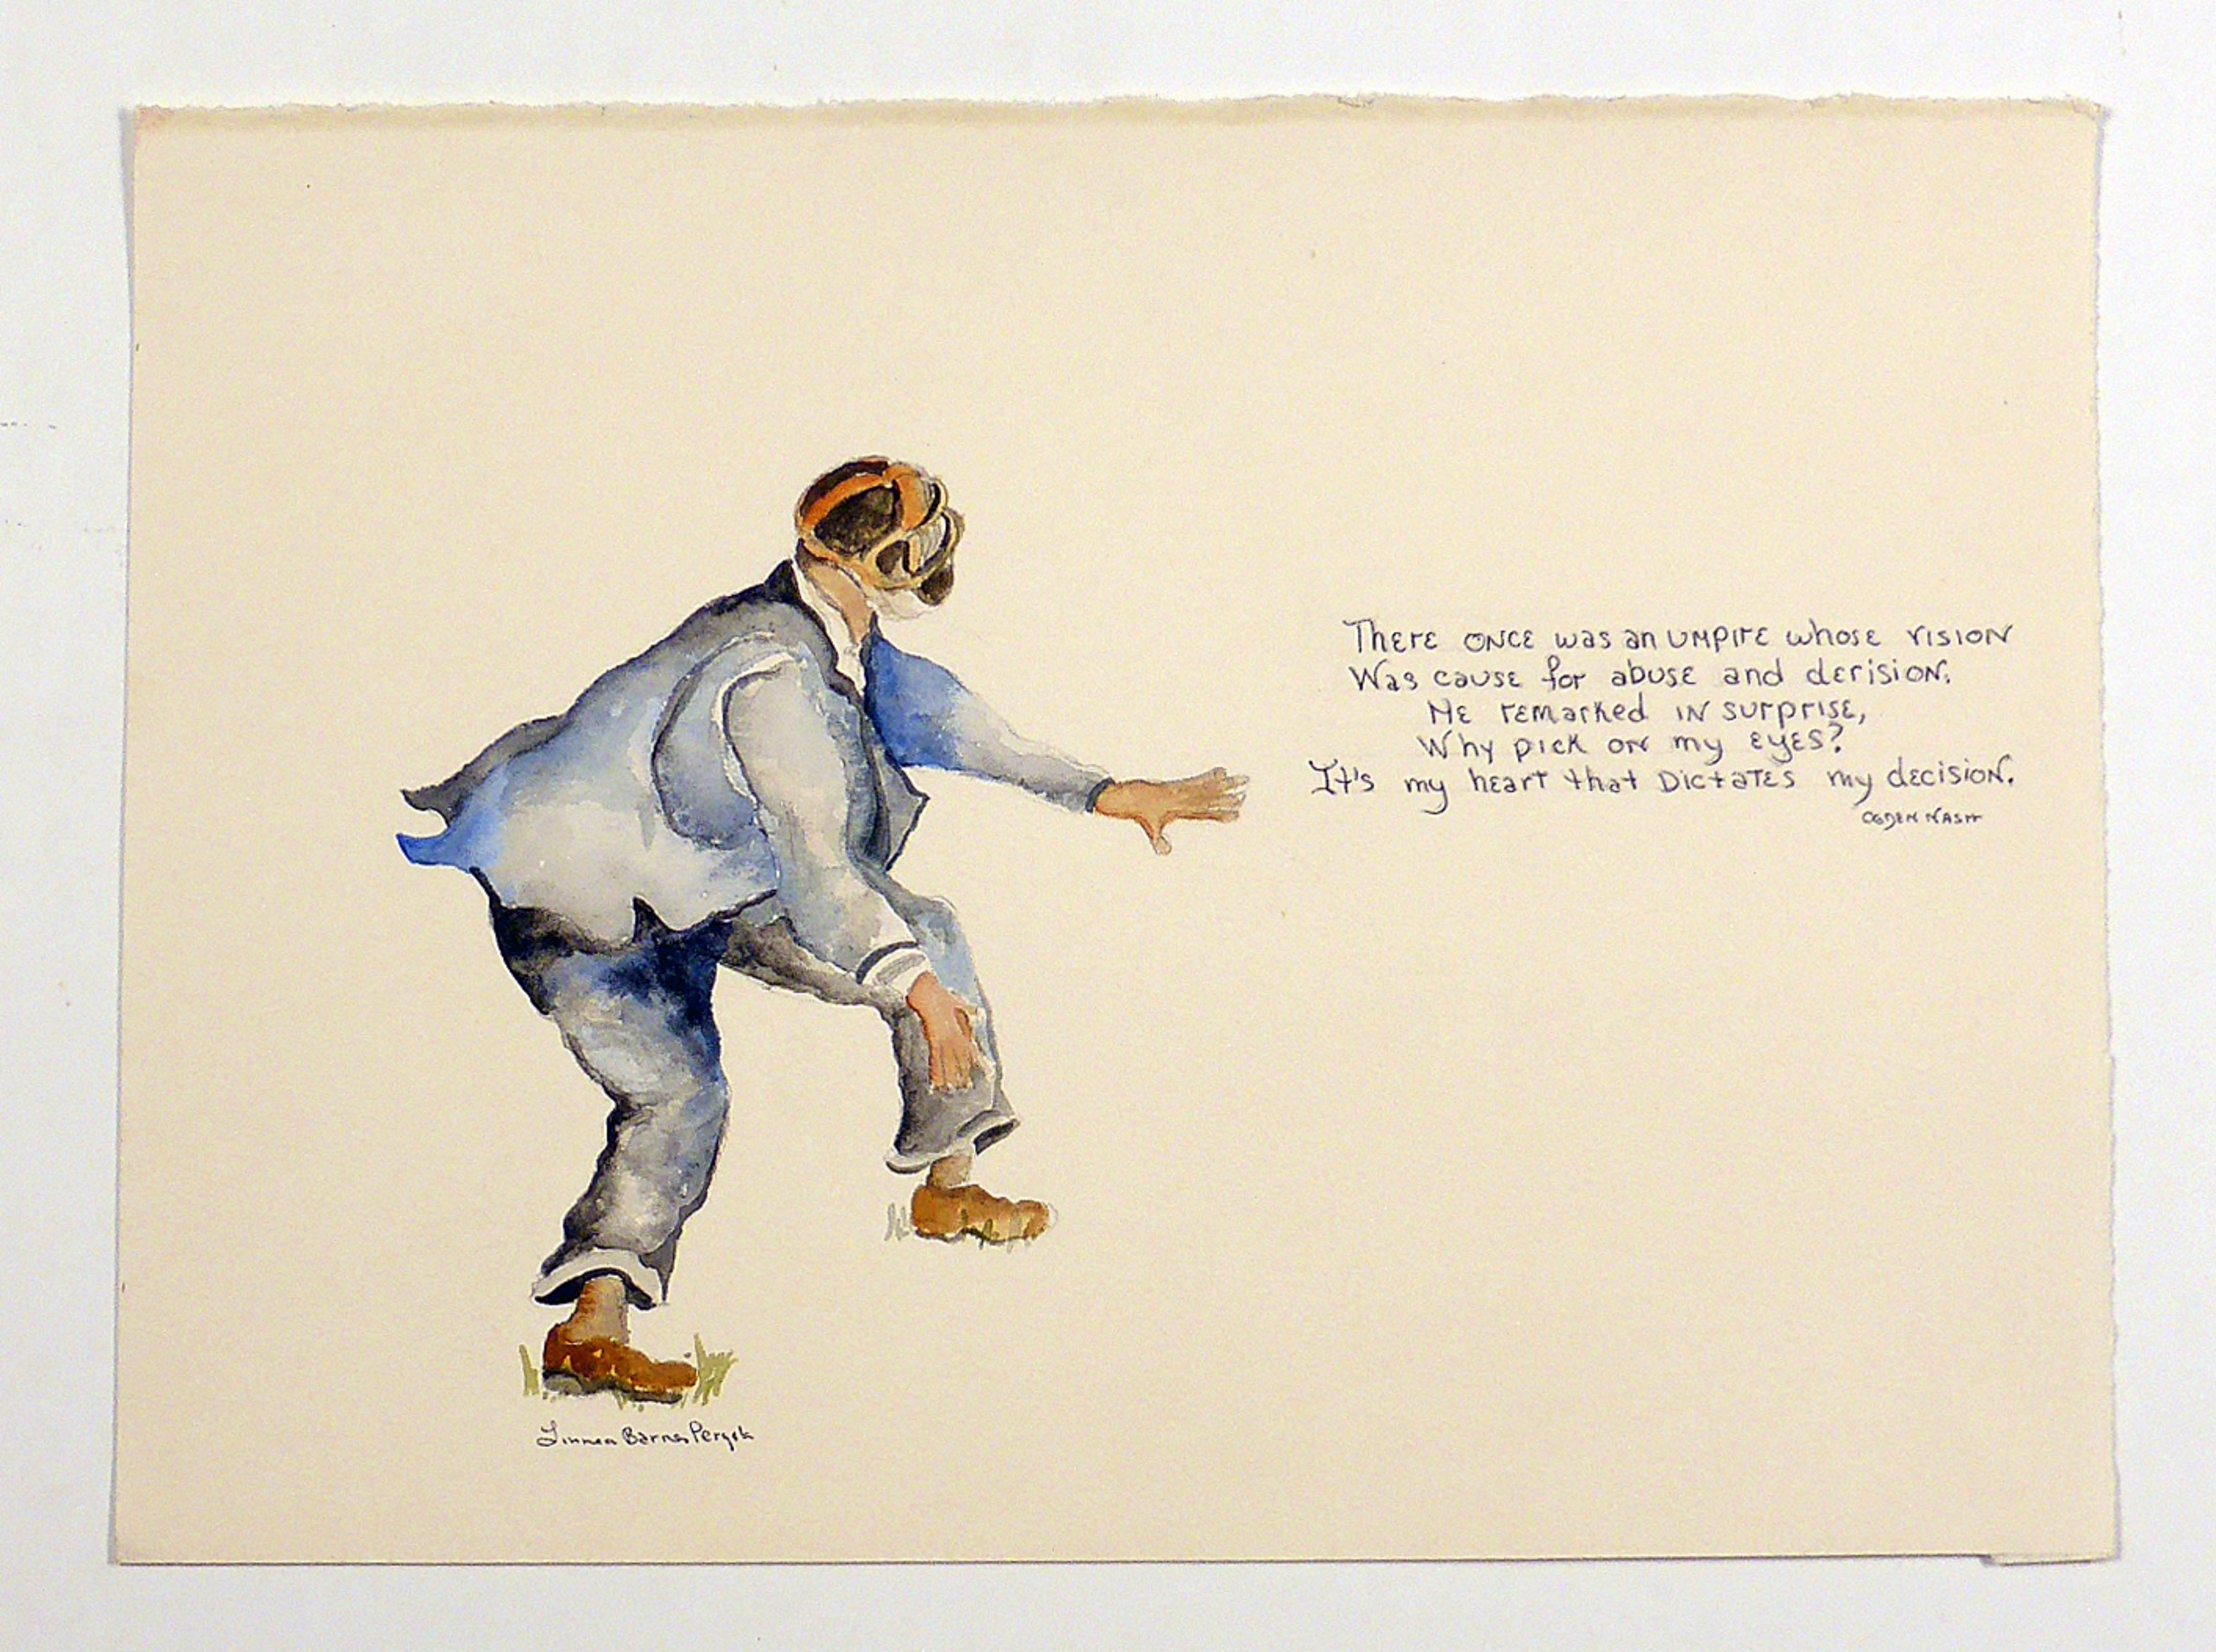 There once was an umpire whose vision
Was cause for abuse and derision.
He remarked in surprise,
Why pick on my eyes?
It's my heart that Dictates my decision.
OGDEN NASH
Linnea Barnes